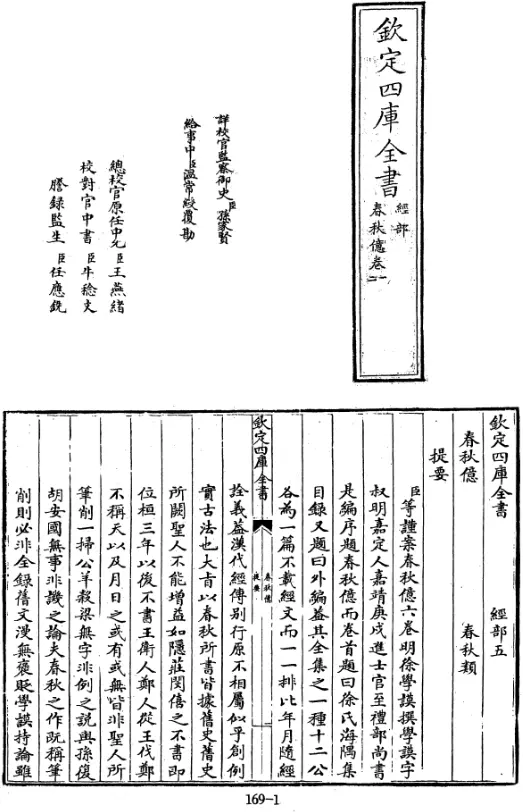 欽定四庫全書
經部
春秋億卷一
詳校官監察御史臣孫家賢
給事中臣溫常綬覆勘
總校官原任中允臣王燕緒
校對官中書臣牛稔文
謄錄監生臣任應銑
欽定四庫全書 經部五
春秋億 春秋類
提要
臣等謹案春秋億六卷明徐學謨撰學謨字
叔明嘉定人嘉靖庚戌進士官至禮部尚書
是編序題春秋億而卷首題曰徐氏海隅集
目錄又題曰外編蓋其全集之一種十二公
各為一篇不載經文而一一排比年月隨經
欽定四庫全書
春秋億
提要
詮義蓋漢代經傳別行原不相屬似乎創例
實古法也大㫖以春秋所書皆據舊史舊史
所闕聖人不能增益如隱莊閔僖之不書即
位桓三年以後不書王衛人鄭人從王伐鄭
不稱天以及月日之或有或無皆非聖人所
筆削一掃公羊穀梁無字非例之説與孫復
胡安國無事非譏之論夫春秋之作既稱筆
削則必非全錄舊文漫無褒貶學謨持論雖
169-1